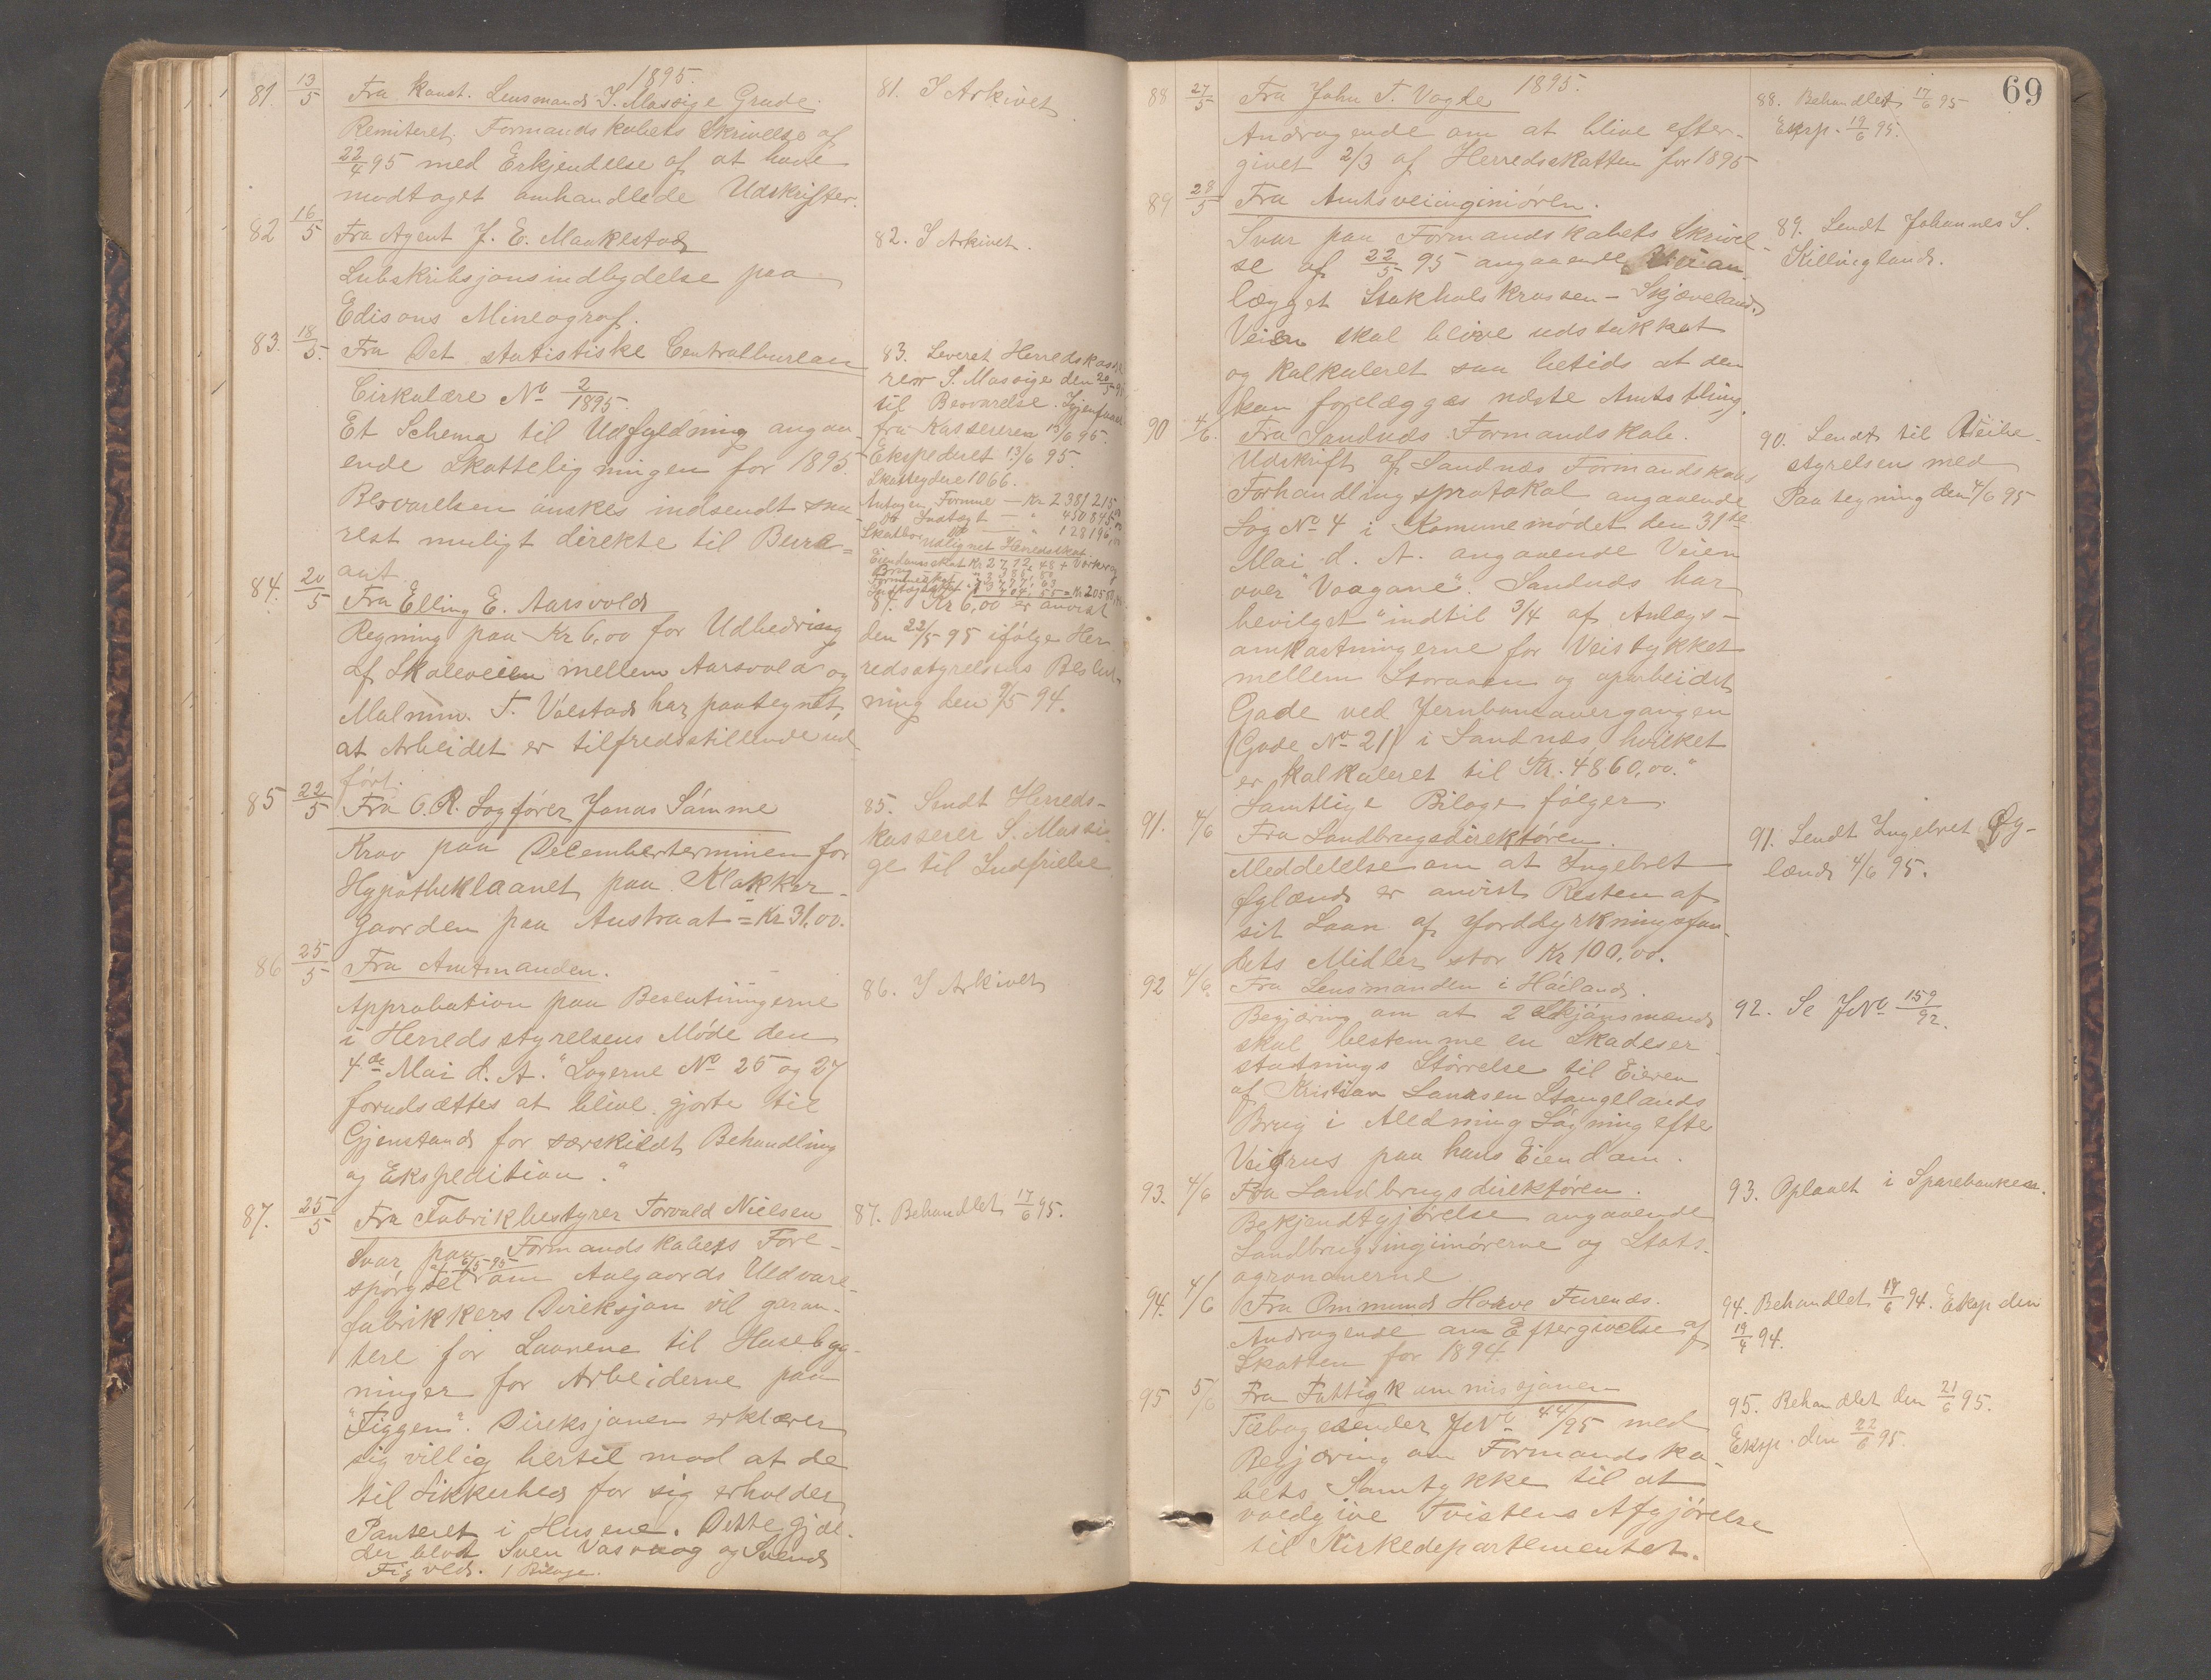 1895.
81. 13/5 Fra Konst. Lensmand S. Massige Grude.
Remiteret Formandskabets Skrivelse af
22/4 95 med Erkjendelse af at have
modtaget omhandlede Udskrifter.
81. I Arkivet
82 16/5 Fra Agent J. E. Maukestad
Subskribsjonsindbydelse paa
Edisons Mineograf.
82. I Arkivet.
83. 18/5. Fra Det statistiske Centralbureau
Cirkulære No 2/1895.
Et Schema til Udfyldning angaa-
ende Skatteligningen for 1895.
Besvarelsen ønskes indsendt sna-
rest muligt direkte til Bure-
aut
83. Leveret Herredskasse-
rer S. Massige den 20/5 95
til Besvarelse. Igjen
fra Kassereren 13/6 95.
Ekspederet 13/6 95.
Skatteydere 1066.
Antagen Formue — Kr 2381215,00
do Indtægt — " 450845,00
Skatbar do — " 128196,00
Udlignet Herredsskat
Eiendomsskat Kr 2772,48
84. 20/5 Fra Elling E. Aarsvold
Regning paa Kr 6,00 for Udbedring
af Skoleveien mellem Aarsvold og
Malmin. T. Valstad har paategnet,
at Arbeidet er tilfredsstillende ud-
ført.
84. Kr 6,00 er anvist
den 22/5 95 ifølge Her-
redsstyrelsens Beslut-
ning den 9/5 94.
85 22/5 Fra O.R. Sagfører Jonas Sømme
Krav paa Decemberterminen for
Hypotheklaanet paa Klokker-
Gaarden paa Austraat = Kr 31,00.
85. Sendt Herreds-
kasserer S. Massi-
ge til Indfrielse
86 25/5 Fra Amtmanden.
Approbation paa Beslutningerne
i Herredsstyrelsens Møde den
4de Mai d. A. "Sagerne No 25 og 27
forudsættes at blive gjorte til
Gjenstand for særskildt Behandling
og Ekspedition."
86. I Arkivet
87. 25/5 Fra Fabrikbestyrer Torvald Nielsen
Svar paa Formandskabets Fore-
af 6/5 95
spørgsel om Aalgaards Uldvare-
fabrikkers Direksjon vil garan-
tere for Laanene til Husebyg-
ninger for Arbeiderne paa
"Figgen". Direksjonen erklærer
sig villig hertil mod at de
til Sikkerhed for sig erholder
Panteret i Husene. Dette gjæl-
der blot Sven Vasvaag og Svend
Figved. 1 Bilage.
87. Behandlet 17/6 95.
69
1895.
88 27/5 Fra John T. Vagle
Andragende om at blive efter-
givet 2/3 af Herredsskatten for 1895
88. Behandlet 17/6 95
Eksp. 19/6 95.
89 28/5 Fra Amtsveiinginiøren.
Svar paa Formandskabets Skrivel-
se af 22/5 95 angaaende Veian-
lægget Stokholskrossen - Skjæveland.
Veien skal blive udstukket
og kalkuleret saa betids at den
kan forelægges næste Amtsthing.
89. Sendt Johannes S.
Killingland.
90 4/6. Fra Sandnæs Formandskab.
Udskrift af Sandnæs Formandskabs
Forhandlingsprotokol angaaende
Sag No 4 i Komunemødet den 31te
Mai d. A. angaaende Veien
over "Vaagane". Sandnæs har
bevilget "indtil 3/4 af Anlægs-
omkastningerne for Veistykket
mellem Storaaen og oparbeidet
Gade ved Jernbaneovergangen
(Gade No 21) i Sandnæs, hvilket
er kalkuleret til Kr. 4860,00."
Samtlige Bilage følger.
90. Sendt til Veibe-
styrelsen med
Paategning den 4/6 95
91. 4/6 Fra Landbrugsdirektøren.
Meddelelse om at Ingebret
Øglænd er anvist Resten af
sit Laan af Jorddyrkningsfon-
dets Midler stor Kr 100,00.
91. Sendt Ingebret Øg-
lænd 4/6 95.
92 4/6 Fra Lensmanden i Høiland.
Begjæring om at 2 Skjønsmænd
skal bestemme en Skadeser-
statnings Størrelse til Eieren
af Kristian Laursen Stangelands
Brug i Anledning Søgning efter
Veigrus paa hans Eiendom.
92. Se JNo 159/92.
93. 4/6 Fra Landbrugsdirektøren.
Bekjendtgjørelse angaaende
Landbrugsinginiørerne og Stats-
agronomerne
93. Opslaaet i Sparebanken.
94. 4/6 Fra Ommund Hove Furenæs.
Andragende om Eftergivelse af
Skatten for 1894.
94. Behandlet 18/6 94. Eksp den
19/4 94.
95 5/6 Fra Fattigkommissjonen
Tilbagesender JNo 44/95 med
Begjæring om Formandska-
bets Samtykke til at
voldgive Tvistens Afgjørelse
til Kirkedepartementet.
95. Behandlet den 21/6 95.
Eksp. den 22/6 95.